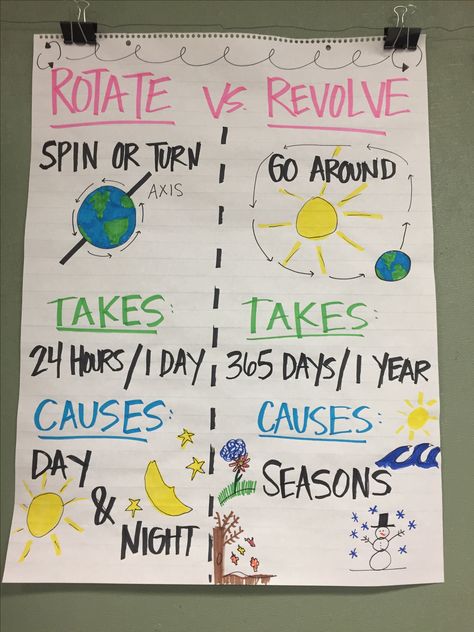 ROTATE VS. REVOLVE
SPIN OR TURN
AXIS
TAKES:
24 HOURS/1 DAY
CAUSES:
DAY
&
NIGHT
GO AROUND
TAKES:
365 DAYS/1 YEAR
CAUSES:
SEASONS